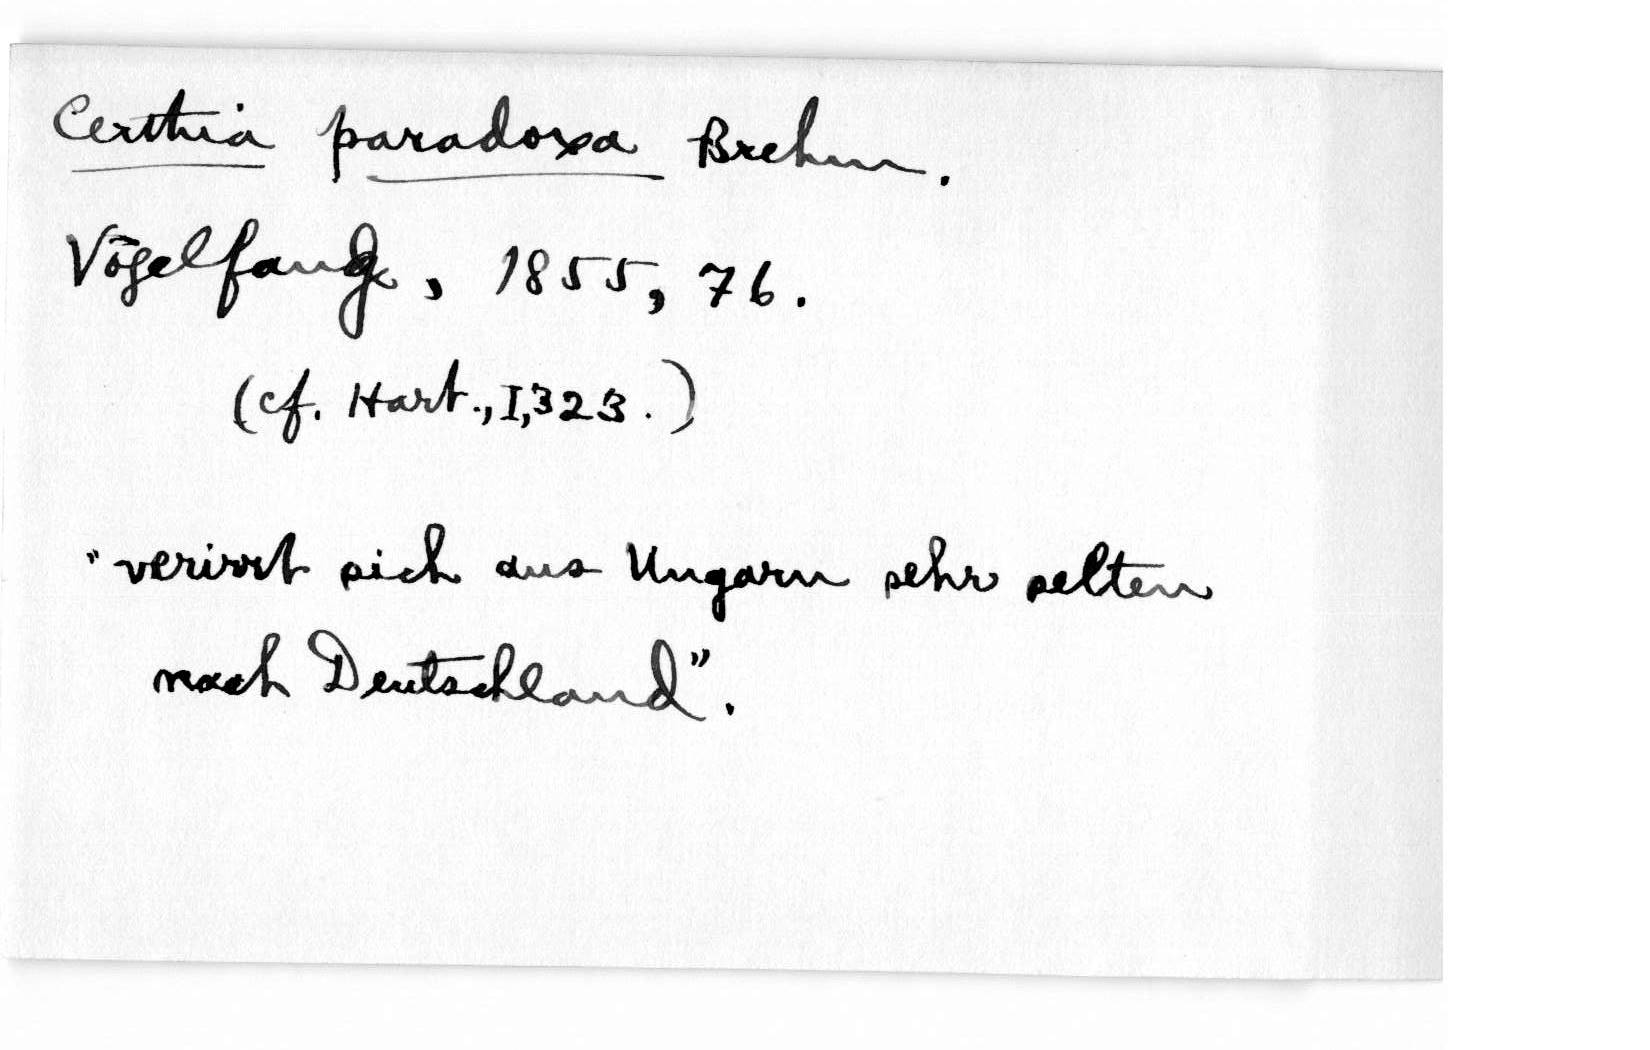 Certhia paradoxa Brehm.
Vögelfang, 1855, 76.
(cf. Hart., I, 323.)
"verirrt sich aus Ungarn sehr selten
nach Deutschland".